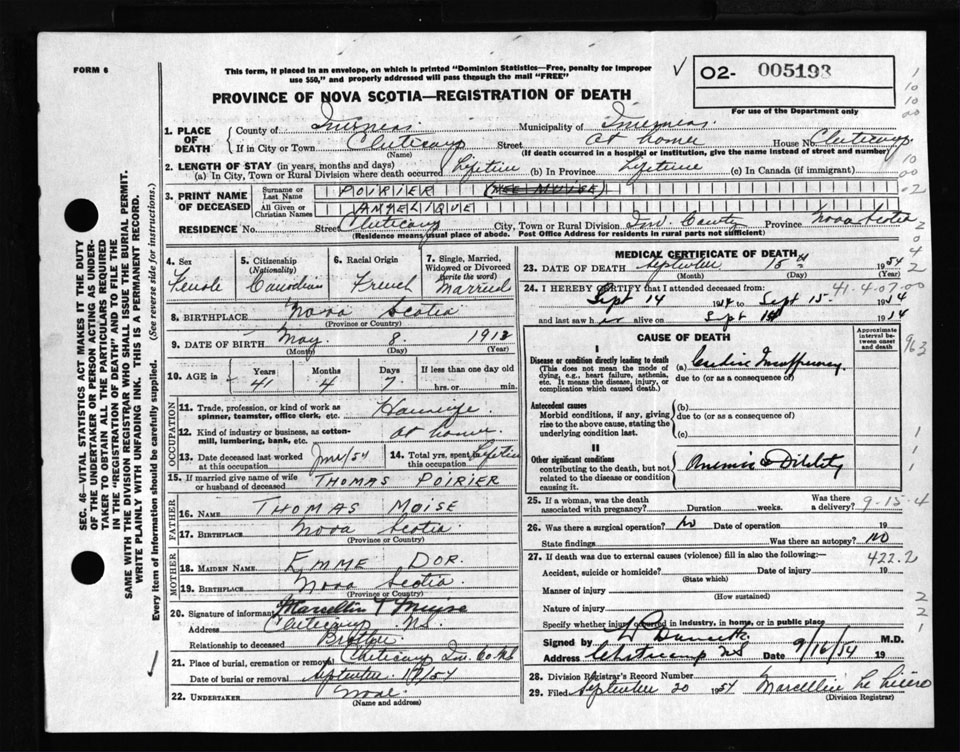 FORM 6
This form, if placed in an envelope, on which is printed "Dominion Statistics—Free, penalty for improper
use $50," and properly addressed will pass through the mail "FREE"
PROVINCE OF NOVA SCOTIA—REGISTRATION OF DEATH
02- 005193
For use of the Department only
1. PLACE OF DEATH
County of Inverness Municipality of Inverness
If in City or Town Cheticamp Street At home House No. Cheticamp
(Name) (If death occurred in a hospital or institution, give the name instead of street and number)
2. LENGTH OF STAY (in years, months and days)
(a) In City, Town or Rural Division where death occurred Lifetime (b) In Province Lifetime (c) In Canada (if immigrant)
3. PRINT NAME OF DECEASED
Surname or Last Name POIRIER (NEE MUISE)
All Given or Christian Names ANGELIQUE
RESIDENCE No. Street Cheticamp City, Town or Rural Division Inv. County Province Nova Scotia
(Residence means usual place of abode. Post Office Address for residents in rural parts not sufficient)
4. Sex Female
5. Citizenship (Nationality) Canadian
6. Racial Origin French
7. Single, Married, Widowed or Divorced (write the word) Married
8. BIRTHPLACE Nova Scotia
(Province or Country)
9. DATE OF BIRTH May 8 1913
(Month) (Day) (Year)
10. AGE in Years 41 Months 4 Days 7 If less than one day old
hrs. or min.
OCCUPATION
11. Trade, profession, or kind of work as spinner, teamster, office clerk, etc. Housewife
12. Kind of industry or business, as cotton-mill, lumbering, bank, etc. At home
13. Date deceased last worked at this occupation June/54
14. Total yrs. spent in this occupation Lifetime
15. If married give name of wife or husband of deceased THOMAS POIRIER
FATHER
16. NAME THOMAS MOISE
17. BIRTHPLACE Nova Scotia
(Province or Country)
MOTHER
18. MAIDEN NAME EMME DOR.
19. BIRTHPLACE Nova Scotia.
(Province or Country)
20. Signature of informant Marcellin T Muise
Address Cheticamp N.S.
Relationship to deceased Brother
21. Place of burial, cremation or removal Cheticamp Inv. Co. N.S.
Date of burial or removal September 17/54
22. UNDERTAKER None
(Name and address)
MEDICAL CERTIFICATE OF DEATH
23. DATE OF DEATH September 15th 1954
(Month) (Day) (Year)
24. I HEREBY CERTIFY that I attended deceased from:
41-4-07-00
Sept 14 1954 to Sept 15 1954
and last saw her alive on Sept 14 1954
CAUSE OF DEATH
Approximate interval between onset and death
I
Disease or condition directly leading to death
(This does not mean the mode of dying, e.g., heart failure, asthenia, etc. It means the disease, injury, or complication which caused death.)
(a) Cardiac Insufficiency
due to (or as a consequence of)
Antecedent causes
Morbid conditions, if any, giving rise to the above cause, stating the underlying condition last.
(b)
due to (or as a consequence of)
(c)
II
Other significant conditions
contributing to the death, but not related to the disease or condition causing it.
Anemia & Debility
25. If a woman, was the death associated with pregnancy? Duration weeks. Was there a delivery? 9-15-4
26. Was there a surgical operation? No Date of operation 19
State findings Was there an autopsy? NO
27. If death was due to external causes (violence) fill in also the following:
422.2
Accident, suicide or homicide? Date of injury 19
(State which)
Manner of injury
(How sustained)
Nature of injury
Specify whether injury occurred in industry, in home, or in public place
Signed by M.D.
Address Cheticamp NS Date 9/16/54 19
28. Division Registrar's Record Number
29. Filed September 20 1954 Marcellin
(Division Registrar)
SEC. 46—VITAL STATISTICS ACT MAKES IT THE DUTY
OF THE UNDERTAKER OR PERSON ACTING AS UNDER-
TAKER TO OBTAIN ALL THE PARTICULARS REQUIRED
IN THE "REGISTRATION OF DEATH" AND TO FILE THE
SAME WITH THE DIVISION REGISTRAR WHO SHALL ISSUE THE BURIAL PERMIT.
WRITE PLAINLY WITH UNFADING INK. THIS IS A PERMANENT RECORD.
Every item of information should be carefully supplied. (See reverse side for instructions.)